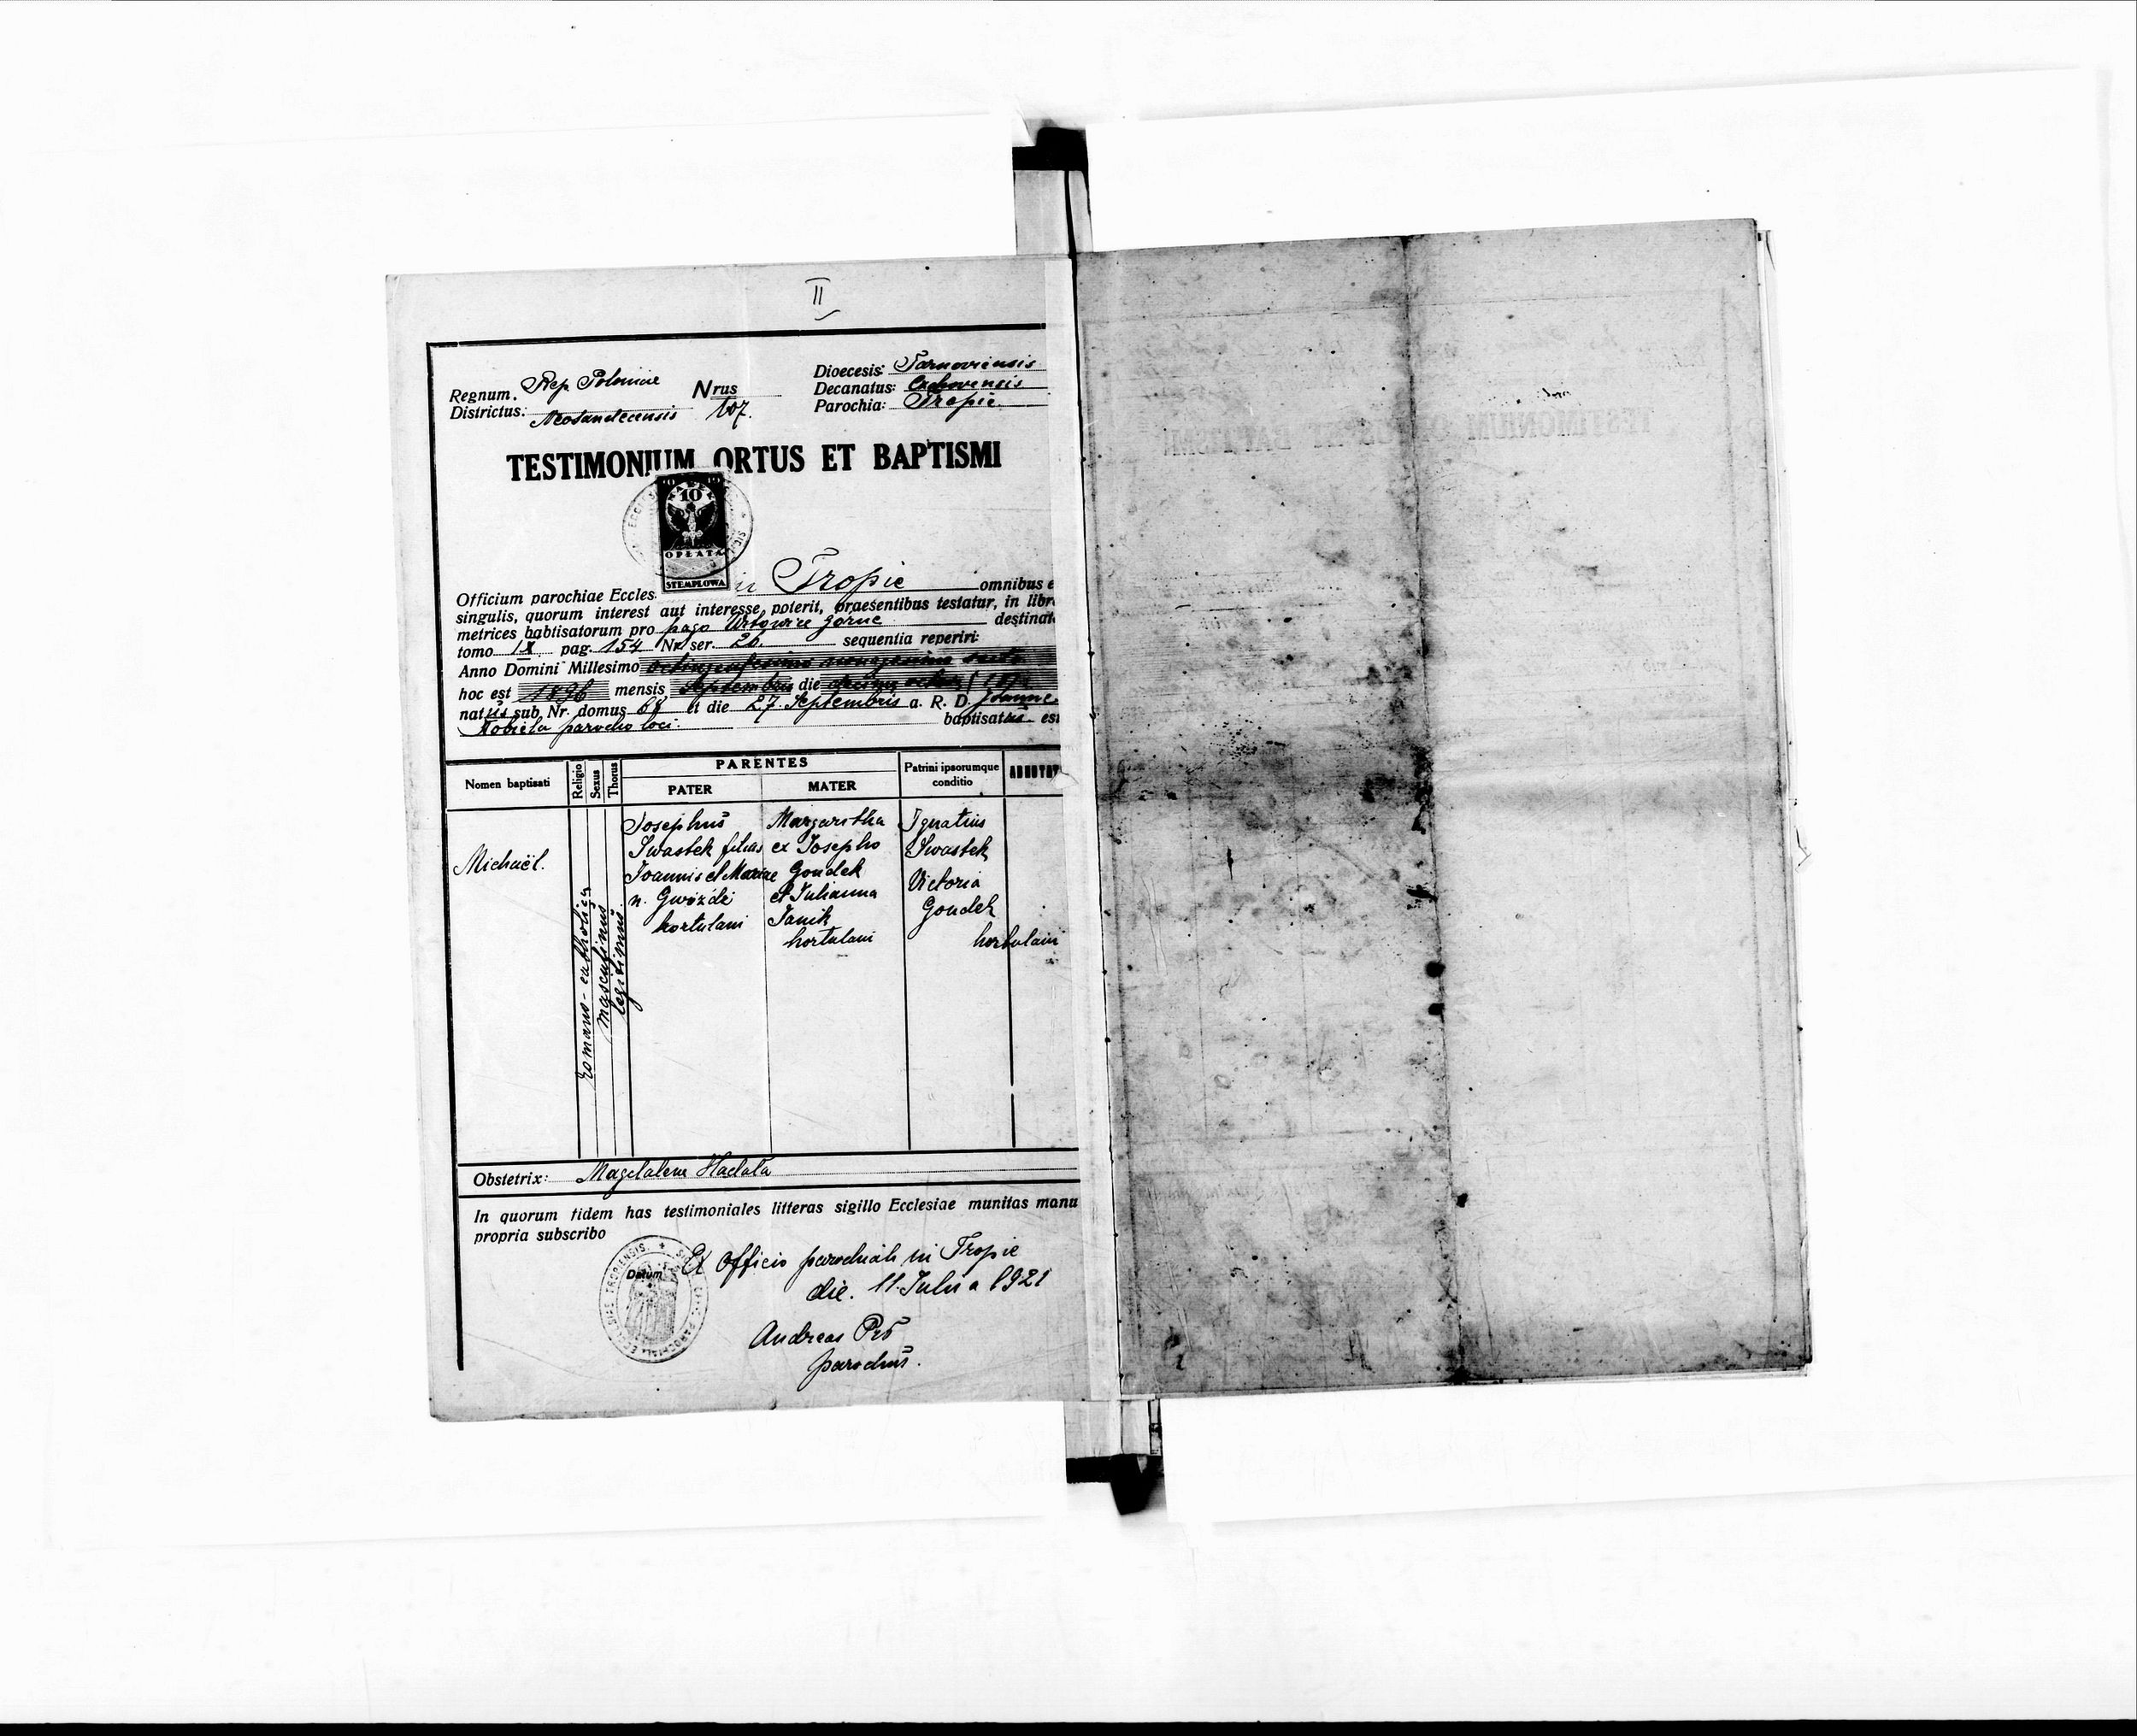 II
Regnum. Rep. Poloniae Nrus Dioecesis: Tarnoviensis
Districtus: Neosandecensis 107. Decanatus:
Parochia: Tropie
TESTIMONIUM ORTUS ET BAPTISMI
10
OPŁATA
STEMPLOWA
Officium parochiae Eccles. in Tropie omnibus e
singulis, quorum interest aut interesse poterit, praesentibus testatur, in libr
metrices babtisatorum pro pago górne destinat
tomo IX pag. 154 Nr. ser. 26. sequentia reperiri:
Anno Domini Millesimo octingentesimo nonagesimo sexto
hoc est 1896 mensis Septembris die decima octava (18)
natus sub Nr. domus 68 et die 27. Septembris a. R. D. Joanne
Kobiela parocho loci. baptisatus est
Nomen baptisati Religio Sexus Thorus PARENTES Patrini ipsorumque conditio
PATER MATER
Michaël.
romano-catholica
masculinus
legitimus
Josephus Margaritha Ignatius
Swastek filius ex Josepho Swastek
Joannis et Mariae Gondek Victoria
n. Gwóźdź et Julianna Gondek
hortulani Janik hortulani
hortulani
Obstetrix: Magdalena Hadała
In quorum fidem has testimoniales litteras sigillo Ecclesiae munitas manu
propria subscribo
Datum Ex Officio parochiali in Tropie
die. 11. Julii a 1921
Andreas
parochus.
TESTIMONIUM ORTUS ET BAPTISMI